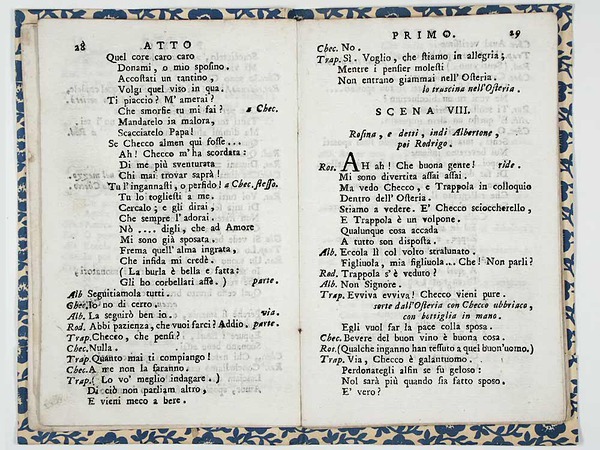 28 ATTO
Quel core caro caro
Donami, o mio sposino.
Accostati un tantino,
Volgi quel viso in qua.
Ti piaccio? M' amerai?
Che smorfie tu mi fai? a Chec.
Mandatelo in malora,
Scacciatelo Papa!
Se Checco almen qui fosse...
Ah! Checco m'ha scordata:
Di me più sventurata
Chi mai trovar saprà!
Tu l'ingannasti, o perfido! a Chec. stesso.
Tu lo togliesti a me.
Cercalo; e gli dirai,
Che sempre l'adorai.
Nò .... digli, che ad Amore
Mi sono già sposata,
Frema quell'alma ingrata,
Che infida mi credè.
( La burla è bella e fatta:
Gli ho corbellati affè. ) parte.
Alb Seguitiamola tutti.
Chec. Io no di certo.
Alb. La seguirò ben io. via.
Rod. Abbi pazienza, che vuoi farci? Addio. parte.
Trap. Checco, che pensi?
Chec. Nulla.
Trap. Quanto mai ti compiango!
Chec. A me non la faranno.
Trap. ( Lo vo' meglio indagare. )
Di ciò non parliam altro,
E vieni meco a bere.
PRIMO. 29
Chec. No.
Trap. Sì. Voglio, che stiamo in allegria;
Mentre i pensier molesti
Non entrano giammai nell' Osteria.
lo trascina nell'Osteria.
SCENA VIII.
Rosina, e detti, indi Albertone,
poi Rodrigo.
Ros. AH ah! Che buona gente! ride.
Mi sono divertita assai assai.
Ma vedo Checco, e Trappola in colloquio
Dentro dell' Osteria.
Stiamo a vedere. E' Checco scioccherello,
E Trappola è un volpone.
Qualunque cosa accada
A tutto son disposta.
Alb. Ercola lì col volto stralunato.
Figliuola, mia figliuola... Che! Non parli?
Rod. Trappola s'è veduto?
Alb. Non Signore.
Trap. Evviva evviva! Checco vieni pure.
sorte dall'Osteria con Checco ubbriaco,
con bottiglia in mano.
Egli vuol far la pace colla sposa.
Chec. Bevere del buon vino è buona cosa.
Ros. (Qualche inganno han tessuto a quel buon'uomo.)
Trap. Via, Checco è galantuomo.
Perdonategli alfin se fu geloso:
Nol sarà più quando sia fatto sposo.
E' vero?